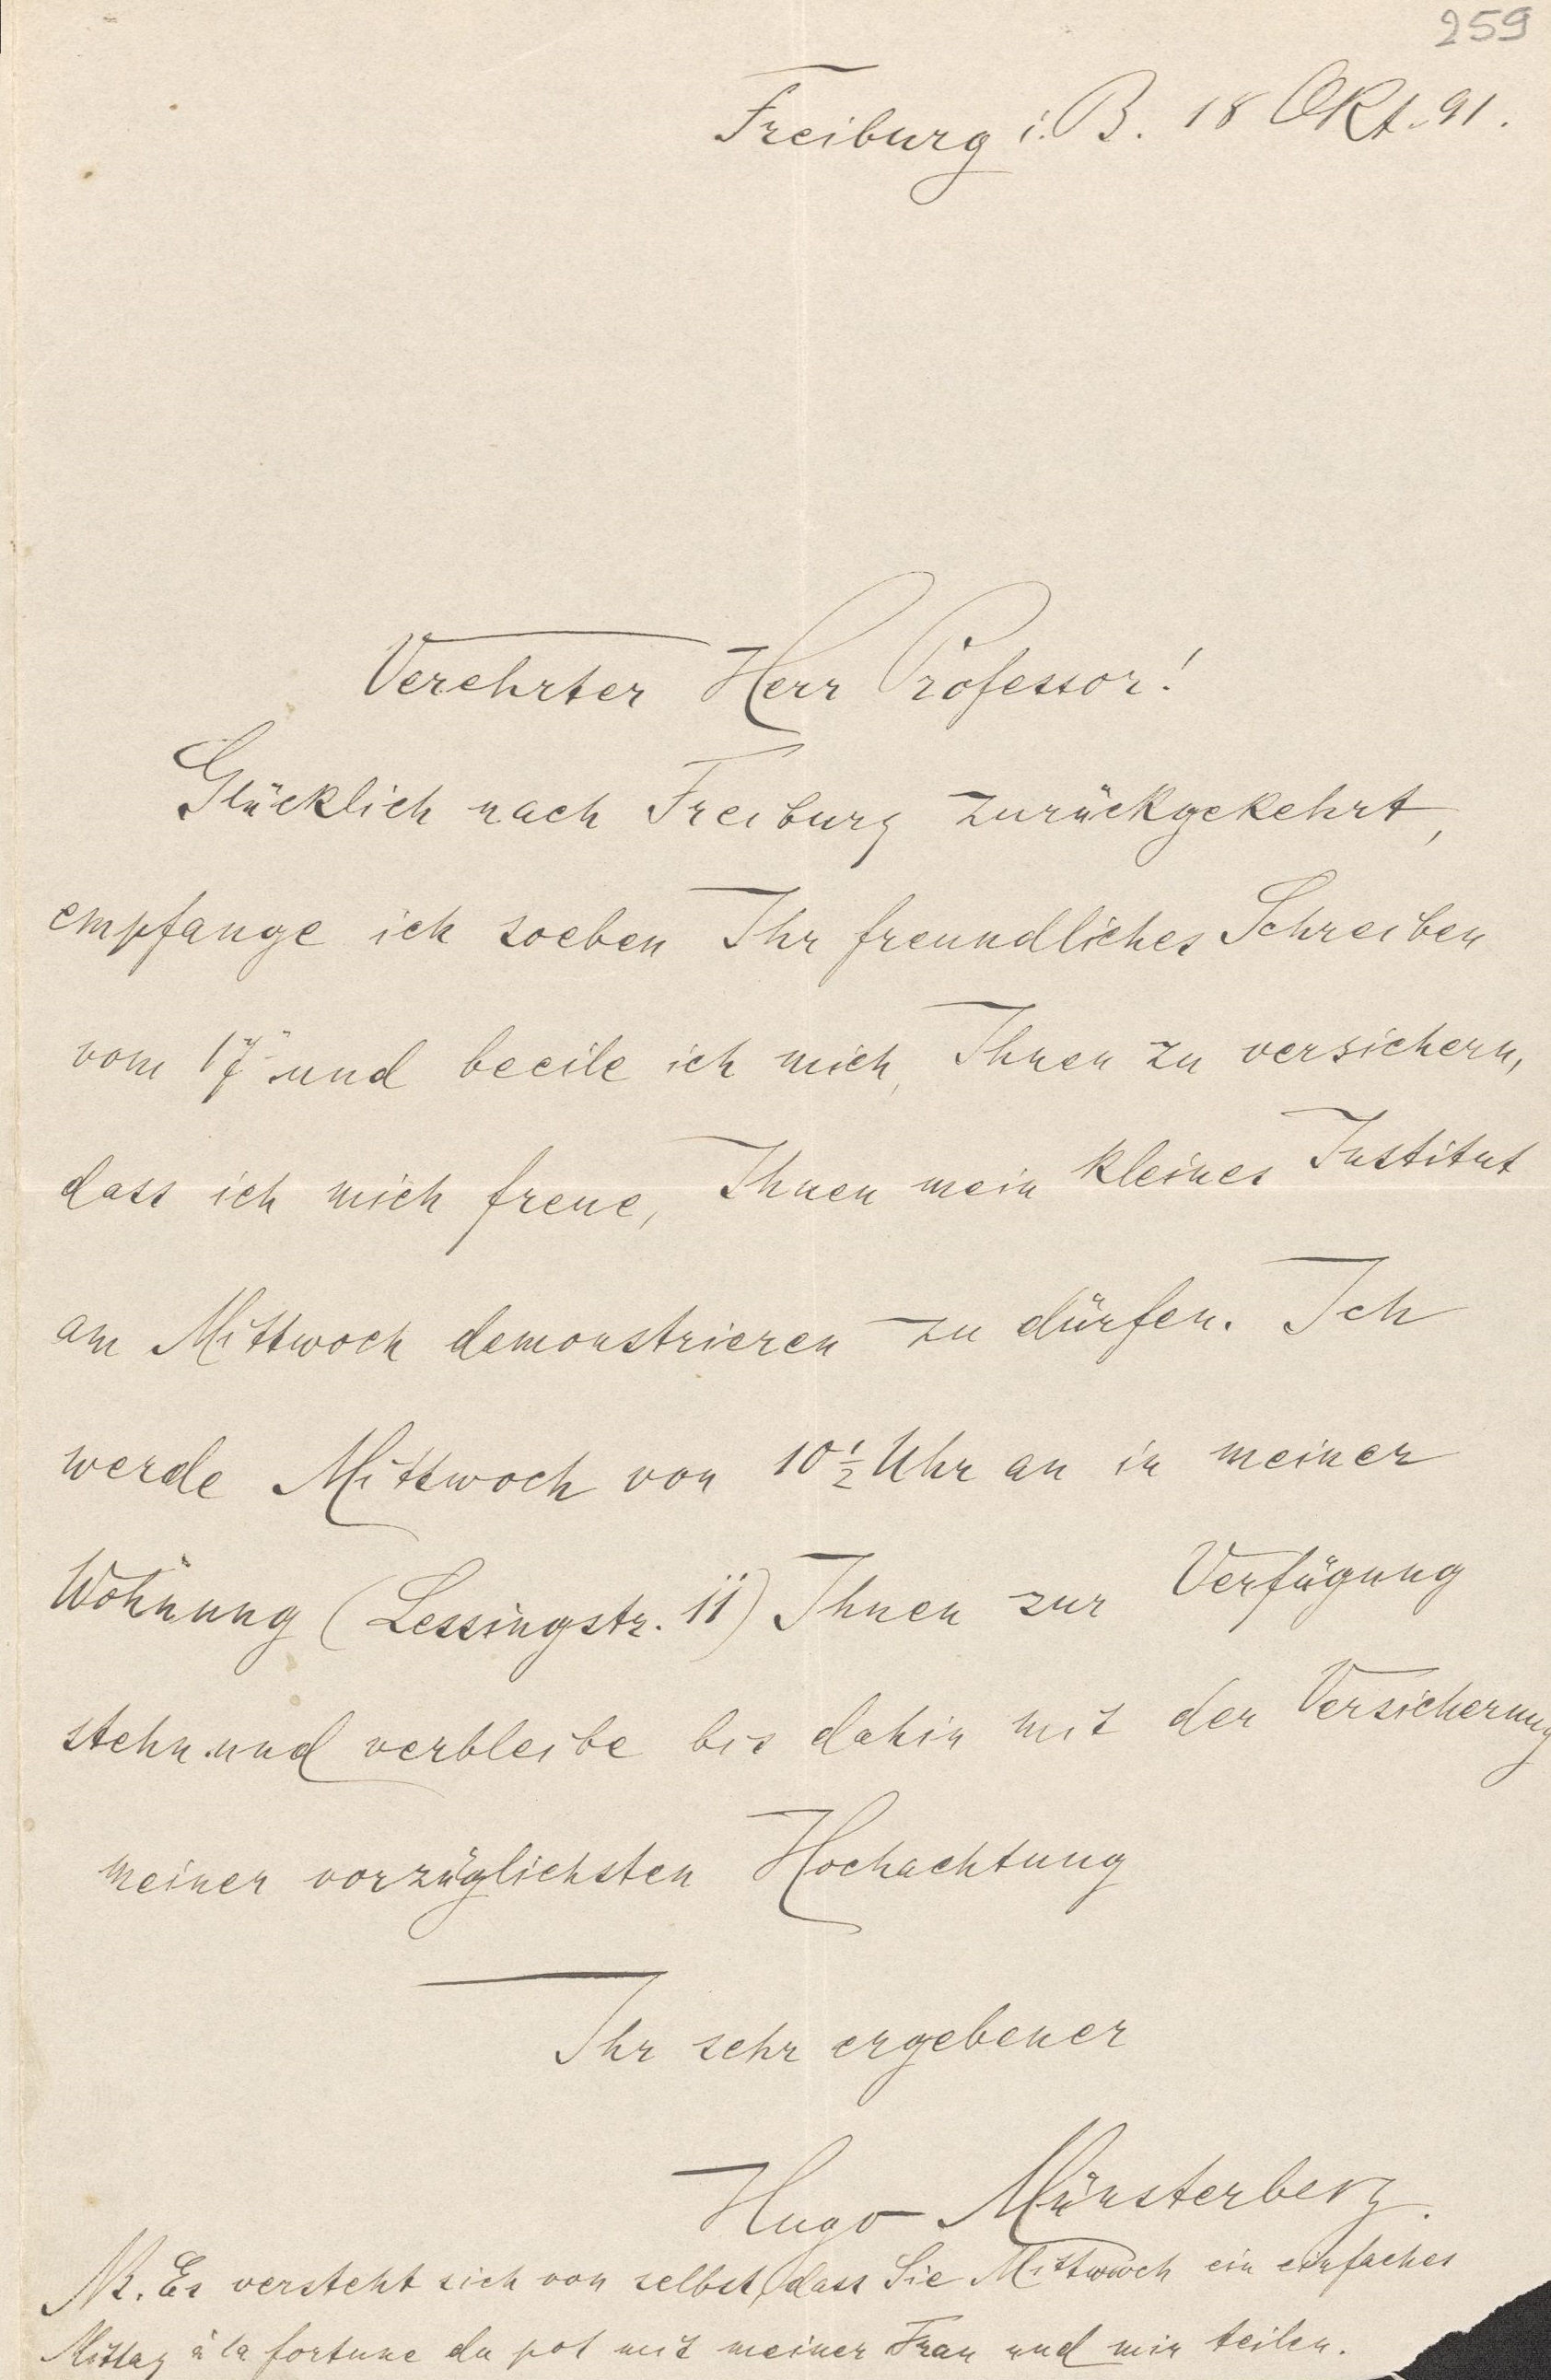 259
Freiburg i. B. 18 Okt. 91.
Verehrter Herr Professor!
Glücklich nach Freiburg zurückgekehrt,
empfange ich soeben Ihr freundliches Schreiben
vom 17ten und beeile ich mich, Ihnen zu versichern,
dass ich mich freue, Ihnen mein kleines Institut
am Mittwoch demonstrieren zu dürfen. Ich
werde Mittwoch von 10 1/2 Uhr an in meiner
Wohnung (Lessingstr. 11) Ihnen zur Verfügung
stehn und verbleibe bis dahin mit der Versicherung
meiner vorzüglichsten Hochachtung
Ihr sehr ergebener
Hugo Münsterberg.
NB. Es versteht sich von selbst, dass Sie Mittwoch ein einfaches
Mittag à la fortune du pot mit meiner Frau und mir teilen.